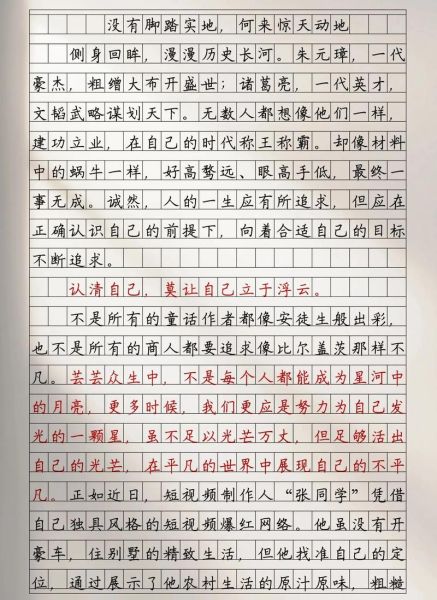 没有脚踏实地，何来惊天动地
侧身回眸，漫漫历史长河。朱元璋，一代
豪杰，粗缯大布开盛世；诸葛亮，一代英才，
文韬武略谋划天下。无数人都想像他们一样，
建功立业，在自己的时代称王称霸。却像材料
中的蜗牛一样，好高骛远、眼高手低，最终一
事无成。诚然，人的一生应有所追求，但应在
正确认识自己的前提下，向着合适自己的目标
不断追求。
认清自己，莫让自己立于浮云。
不是所有的童话作者都像安徒生般出彩，
也不是所有的商人都要追求像比尔盖茨那样不
凡。芸芸众生中，不是每个人都能成为星河中
的月亮，更多时候，我们更应是努力为自己发
光的一颗星，虽不足以光芒万丈，但足够活出
自己的光芒，在平凡的世界中展现自己的不平
凡。正如近日，短视频制作人“张同学”凭借
自己独具风格的短视频爆红网络。他虽没有开
豪车，住别墅的精致生活，但他找准自己的定
位，通过展示了他农村生活的原汁原味，粗糙